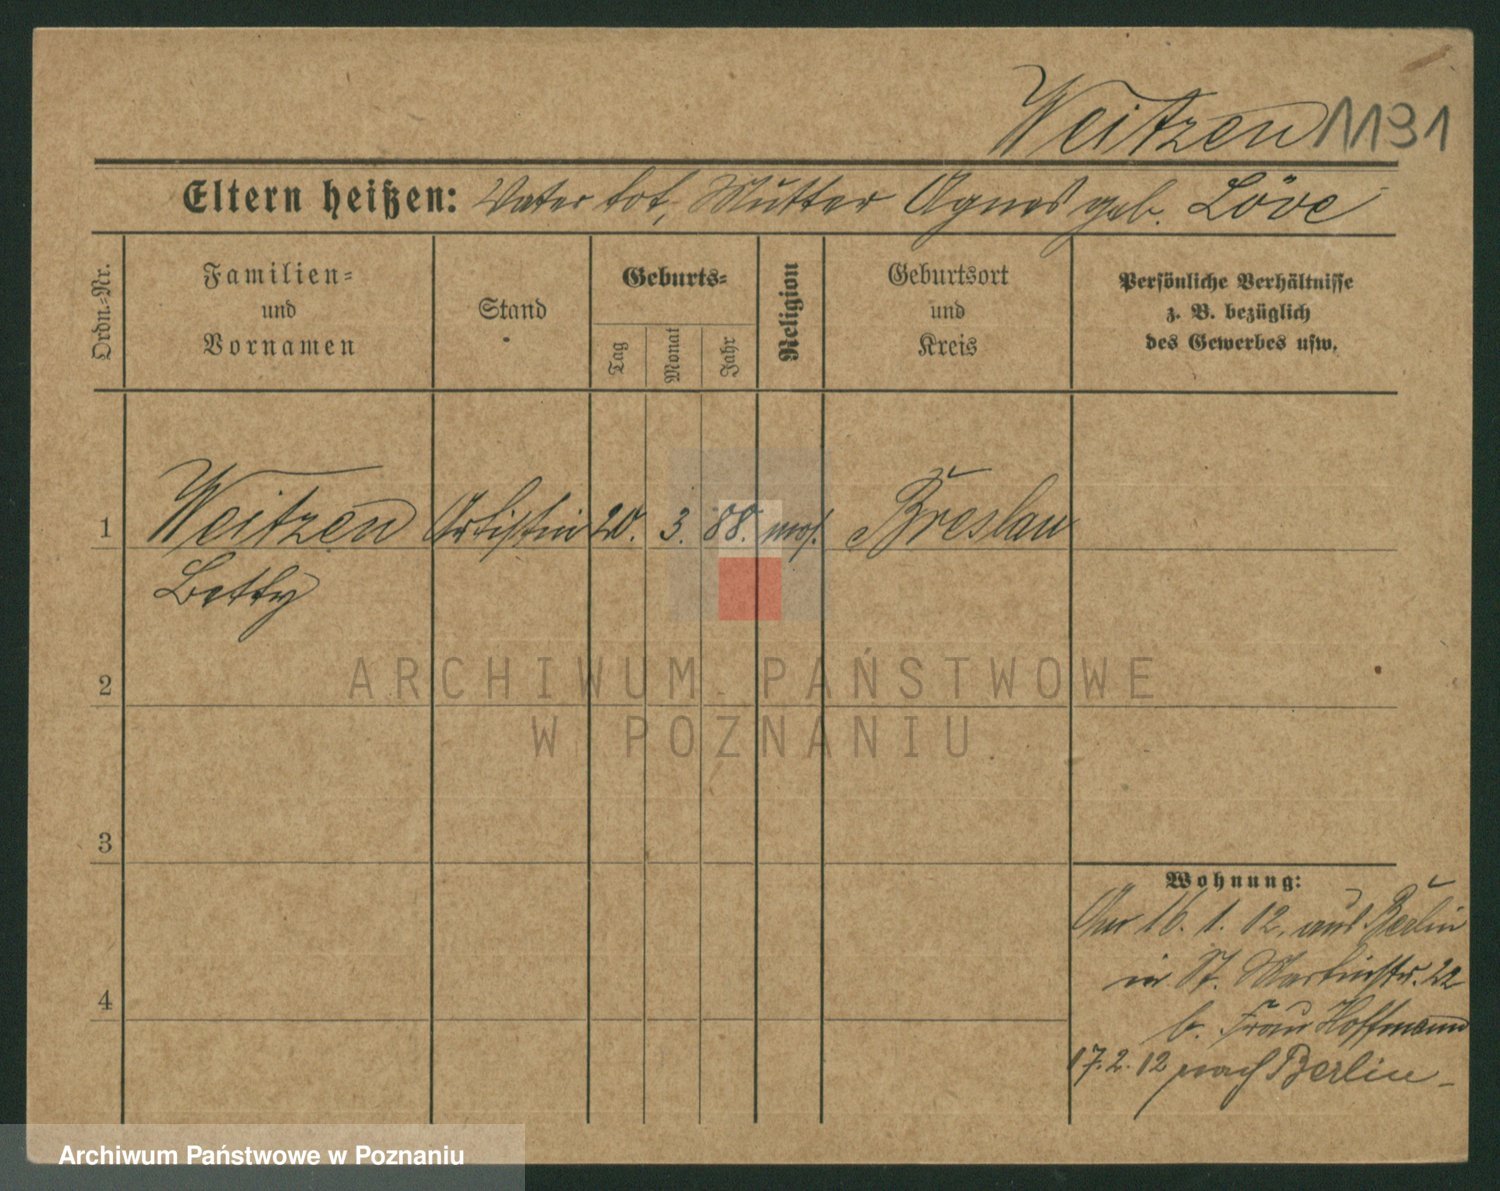 Weitzen 1131
Eltern heißen: Vater tot, Mutter Agnes geb. Löve
Ordn.-Nr.
Familien- und Vornamen
Stand
Geburts-
Tag
Monat
Jahr
Religion
Geburtsort und Kreis
Persönliche Verhältnisse
z. B. bezüglich
des Gewerbes usw.
1 Weitzen Artistin 20. 3. 88. mos. Breslau
Betty
2
ARCHIWUM PAŃSTWOWE
W POZNANIU
3
Wohnung:
Am 16. 1. 12. aus Berlin
in St. Martinstr. 22
b. Frau Hoffmann
4
17. 2. 12 nach Berlin -
Archiwum Państwowe w Poznaniu